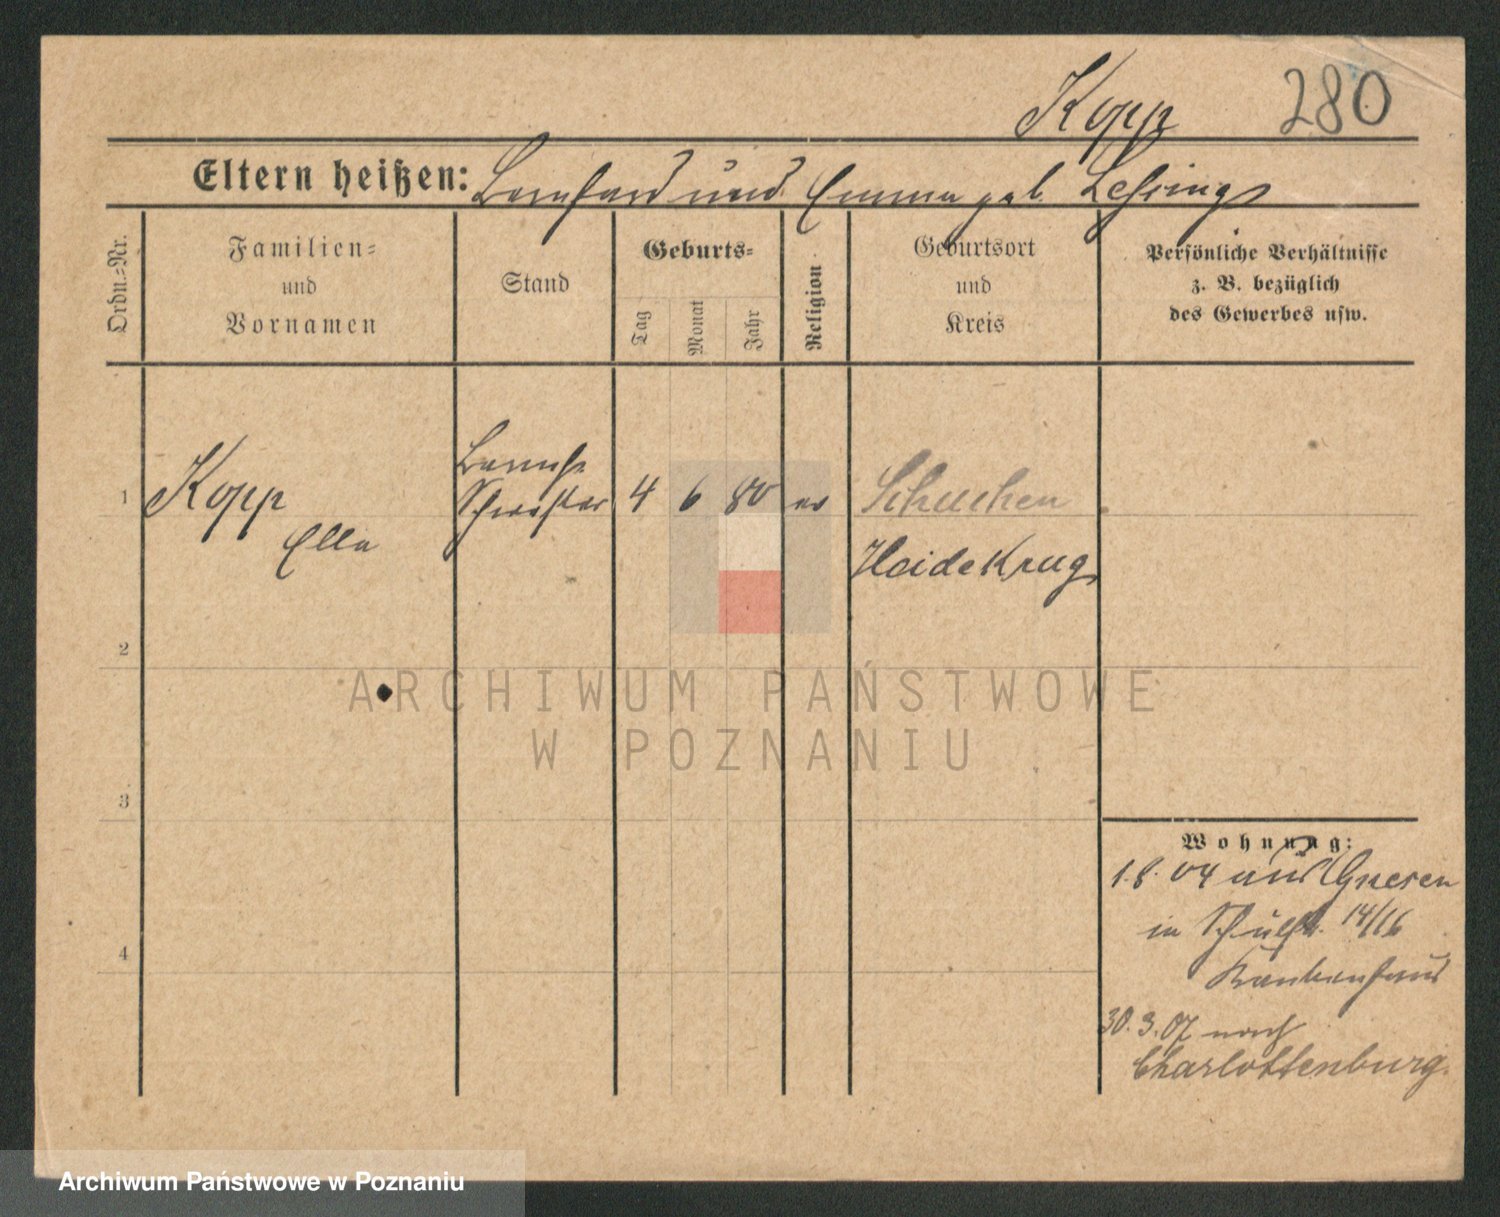 Kopp 280
Eltern heißen: Bernhard und Emma geb. Lehring
Ordn.=Nr.
Familien=
und
Vornamen
Stand
Geburts=
Tag
Monat
Jahr
Religion
Geburtsort
und
Kreis
Persönliche Verhältnisse
z. B. bezüglich
des Gewerbes usw.
1 Kopp
Ella
Berufs
Schwester
4 6 80 ev
Schuchen
Heidekrug
2
3
4
Wohnung:
1.8.04 aus Gnesen
in Schulstr. 14/16
Krankenhaus
30.3.07 nach
Charlottenburg.
ARCHIWUM PAŃSTWOWE
W POZNANIU
Archiwum Państwowe w Poznaniu